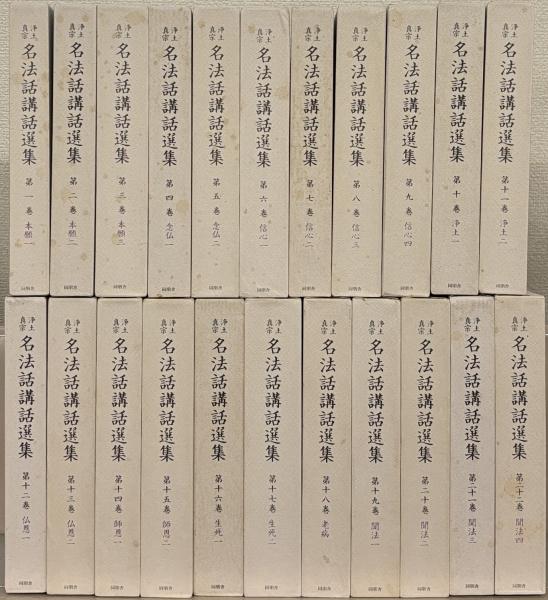 浄土真宗 名法話講話選集 第一巻 本願一 同朋舎
浄土真宗 名法話講話選集 第二巻 本願二 同朋舎
浄土真宗 名法話講話選集 第三巻 本願三 同朋舎
浄土真宗 名法話講話選集 第四巻 念仏一 同朋舎
浄土真宗 名法話講話選集 第五巻 念仏二 同朋舎
浄土真宗 名法話講話選集 第六巻 信心一 同朋舎
浄土真宗 名法話講話選集 第七巻 信心二 同朋舎
浄土真宗 名法話講話選集 第八巻 信心三 同朋舎
浄土真宗 名法話講話選集 第九巻 信心四 同朋舎
浄土真宗 名法話講話選集 第十巻 浄土一 同朋舎
浄土真宗 名法話講話選集 第十一巻 浄土二 同朋舎
浄土真宗 名法話講話選集 第十二巻 仏恩一 同朋舎
浄土真宗 名法話講話選集 第十三巻 仏恩二 同朋舎
浄土真宗 名法話講話選集 第十四巻 師恩一 同朋舎
浄土真宗 名法話講話選集 第十五巻 師恩二 同朋舎
浄土真宗 名法話講話選集 第十六巻 生死一 同朋舎
浄土真宗 名法話講話選集 第十七巻 生死二 同朋舎
浄土真宗 名法話講話選集 第十八巻 老病 同朋舎
浄土真宗 名法話講話選集 第十九巻 聞法一 同朋舎
浄土真宗 名法話講話選集 第二十巻 聞法二 同朋舎
浄土真宗 名法話講話選集 第二十一巻 聞法三 同朋舎
浄土真宗 名法話講話選集 第二十二巻 聞法四 同朋舎